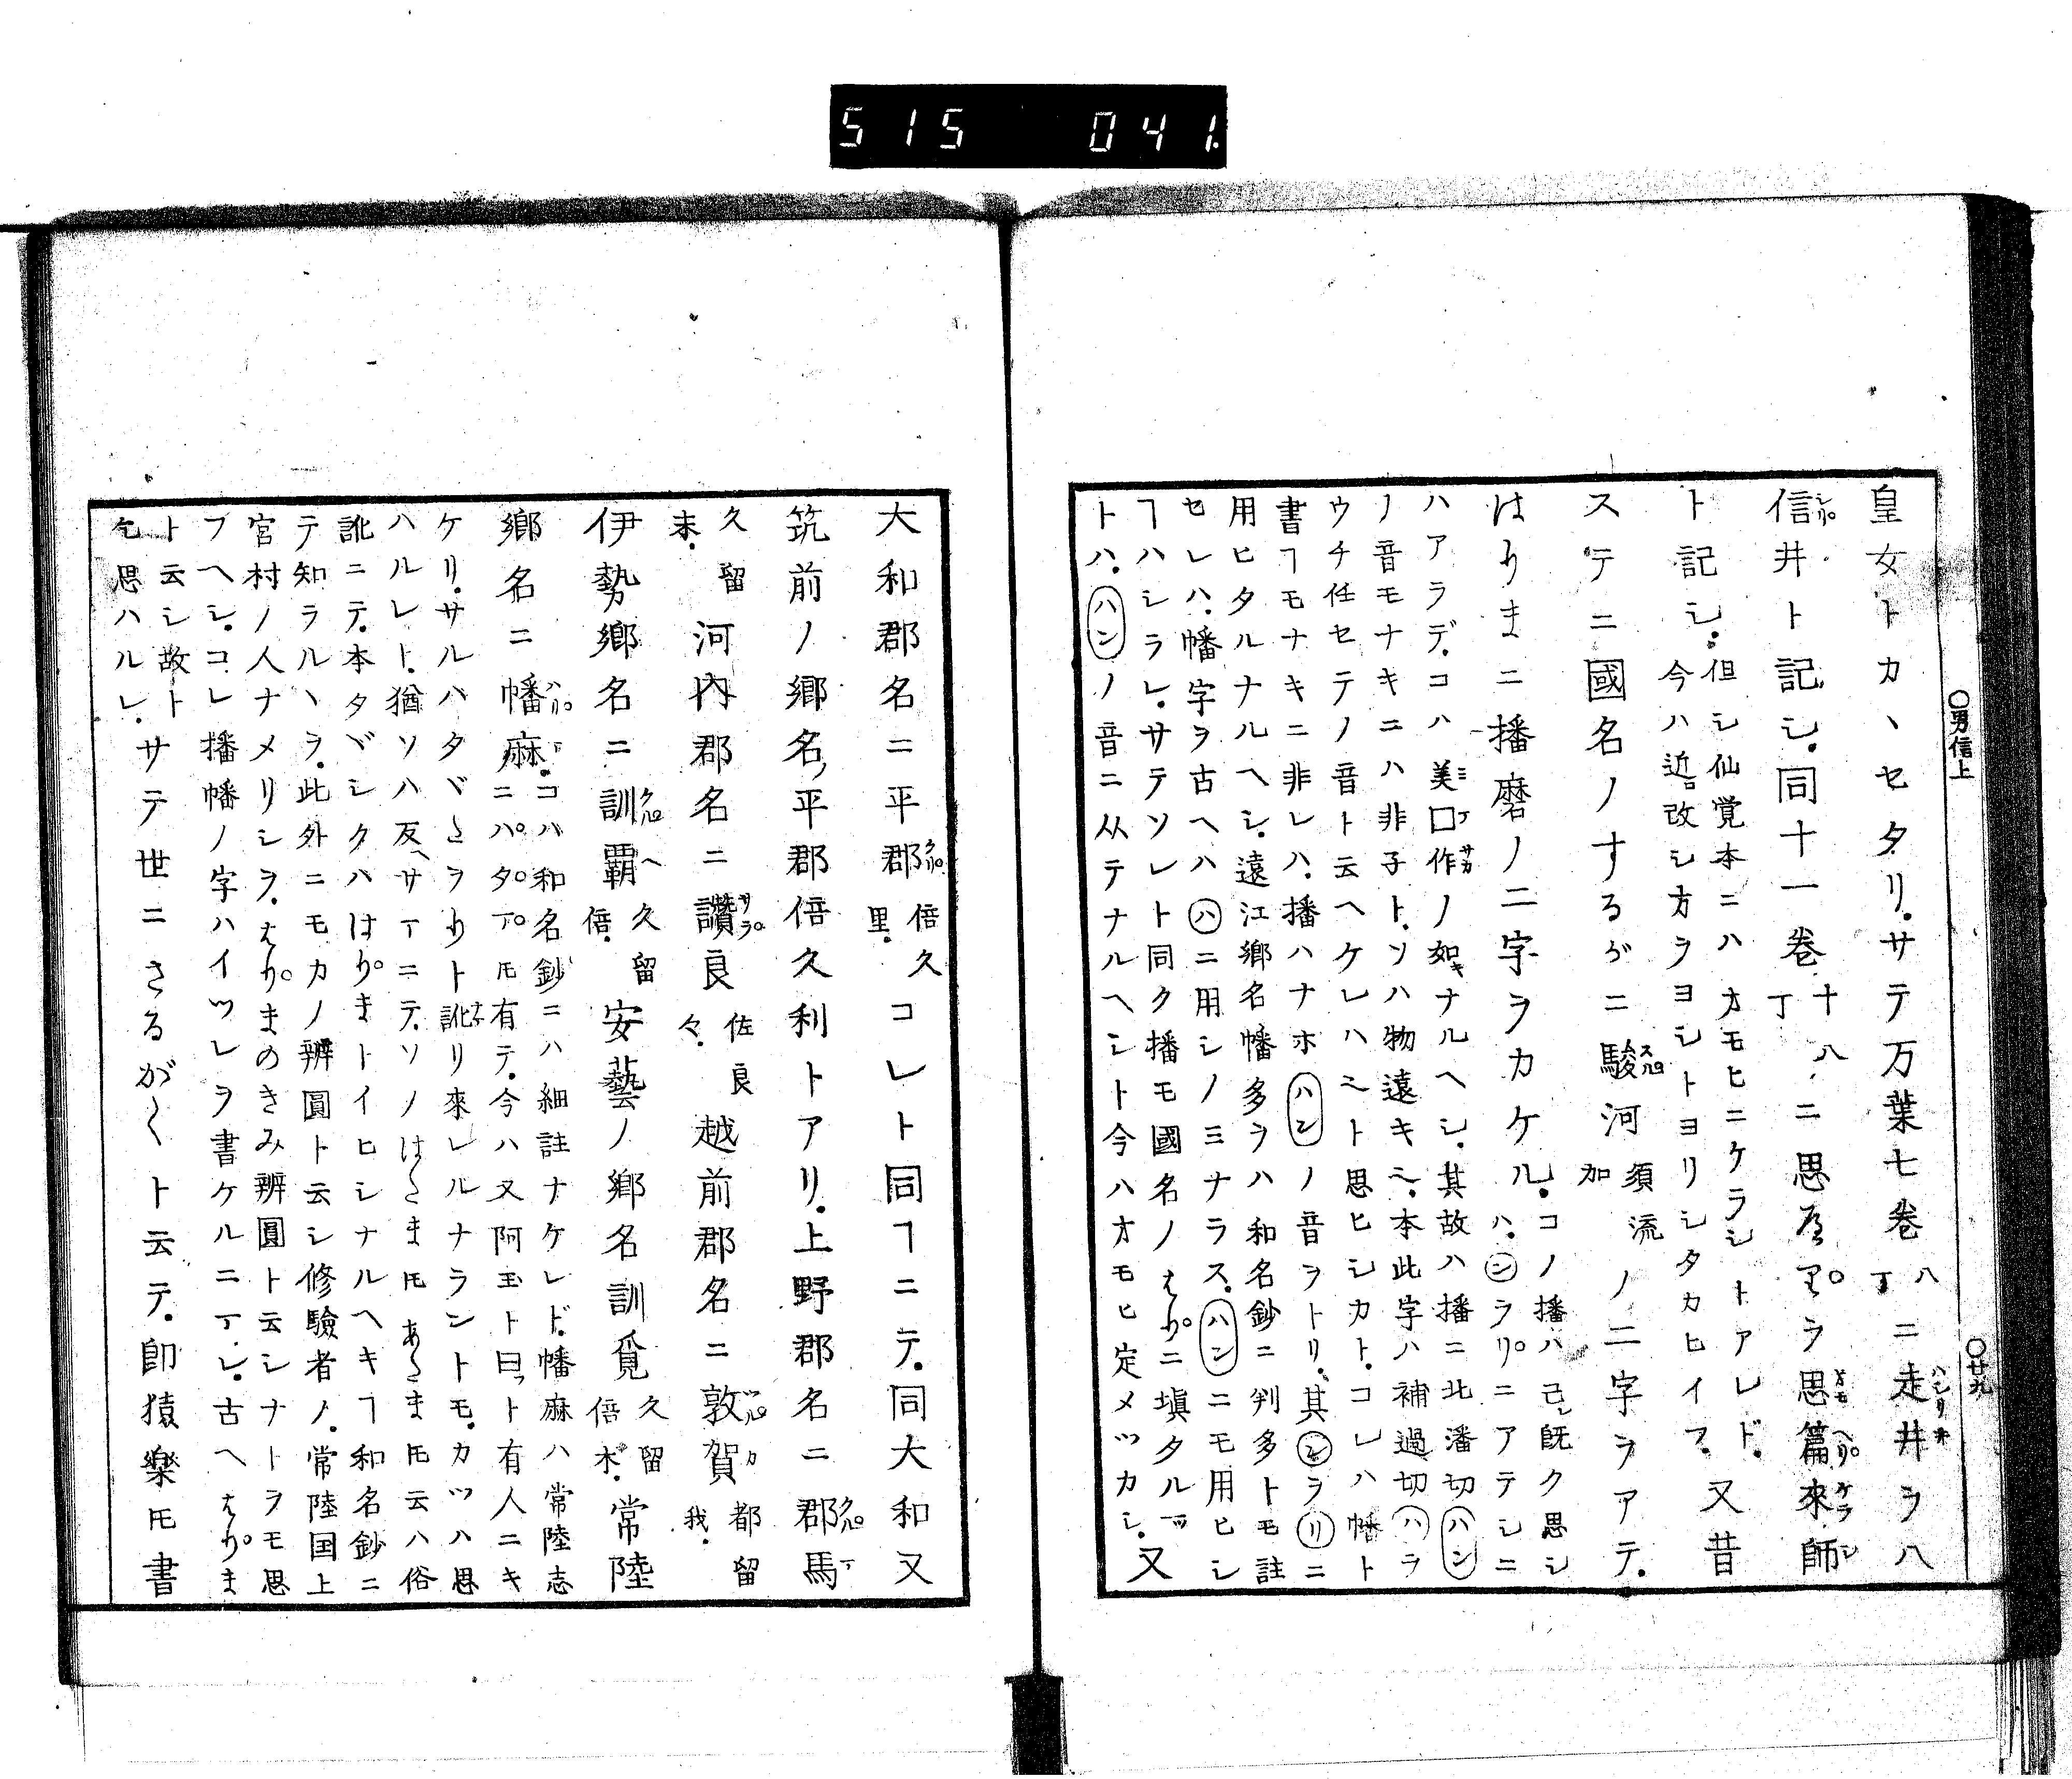 515 041.
○男信上
○廿九
皇女トカヽセタリ.サテ万葉七卷八丁ニ走井ヲハ
信井ト記シ.同十一卷十八丁ニ思ヲ思篇來師
ト記シ.但シ仙覚本ニハオモヒニケラシトアレド.今ハ近口改シ方ヲヨシトヨリシタカヒイフ.又昔
ステニ國名ノするがニ駿河須流加ノ二字ヲアテ.
はりまニ播磨ノ二字ヲカケル.コノ播ハ己レ既ク思シ
ハ.ンヲリニアテシニ
ハアラデ.コハ美口作ノ如キナルヘシ.其故ハ播ニ北潘切ハン
ノ音モナキニハ非子ト.ソハ物遠キ.本此字ハ補過切ハラ
ウチ任セテノ音ト云ヘケレハト思ヒシカト.コレハ幡ト
書ヿモナキニ非レハ.播ハナホハンノ音ヲトリ.其ンヲリニ
用ヒタルナルヘシ.遠江郷名幡多ヲハ和名鈔ニ判多トモ註
セレハ.幡字ヲ古ヘハハニ用シノミナラス.ハンニモ用ヒシ
ヿハシラレ.サテソレト同ク播モ國名ノはりニ塡タルヿ
トハ.ハンノ音ニ从テナルヘシト今ハオモヒ定メツカシ.又
大和郡名ニ平郡倍久里.コレト同ヿニテ.同大和又
筑前ノ鄉名ノ平郡倍久利トアリ.上野郡名ニ郡馬
久留末.河內郡名ニ讚良佐良々.越前郡名ニ敦賀都留我.
伊勢鄉名ニ訓覇久留倍.安藝ノ鄉名訓覓久留倍木.常陸
鄉名ニ幡麻.コハ和名鈔ニハ細註ナケレド.幡麻ハ常陸志
ニハタマ𪜈有テ.今ハ又阿玉ト曰ット有人ニキ
ケリ.サルハタヾヽヲりト訛リ來レルナラントモ.カツハ思
ハルレト.猶ソハ反サマニテ.ソノはゝま𪜈あゝま𪜈云ハ俗
訛ニテ.本タヾシクハはりまトイヒシナルヘキヿ和名鈔ニ
テ知ラルヽヲ.此外ニモカノ辨圓ト云シ修驗者ノ.常陸国上
宮村ノ人ナメリシヲ.はりまのきみ辨圓ト云シナトヲモ思
フヘシ.コレ播幡ノ字ハイツレヲ書ケルニマレ.古ヘはりま
ト云シ故ト
乞思ハルレ.サテ世ニさるがくト云テ.卽猿樂𪜈書